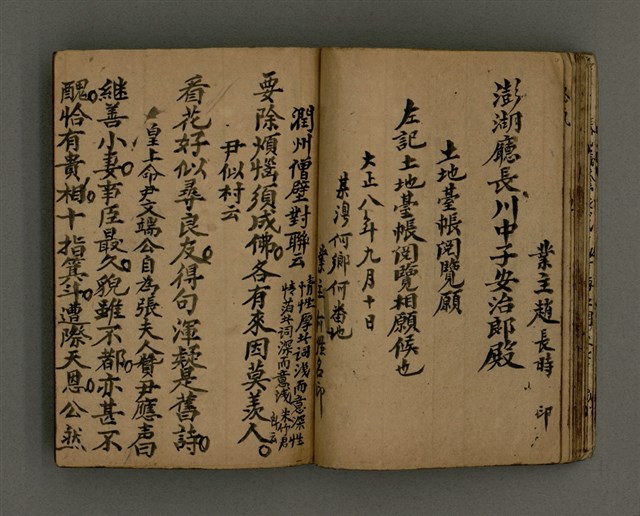 業主趙長時 印
澎湖廳長川中子安治郎殿
土地臺帳閲覽願
左記土地臺帳閲覽相願候也
大正八年九月十日
某澳何鄉何番地
業主何姓名印
潤州僧壁對聯云
情性厚其詞淺而意深性
情薄其詞深而意淺
要除煩惱須成佛各有來因莫羡人。
尹似村云
看花好似尋良友得句渾疑是舊詩
皇上命尹文端公自為張夫人贊尹應声曰
継善小妻事臣最久貌雖不都亦甚不
醜恰有貴相十指箕斗遭際天恩公然